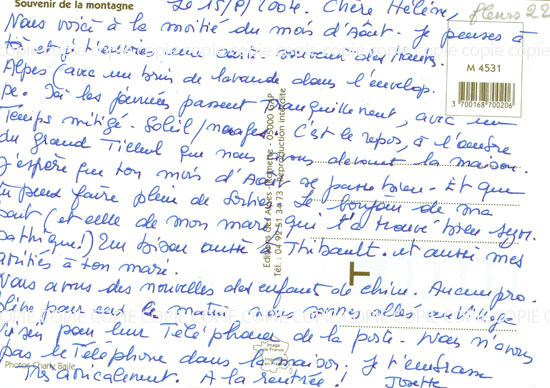 Souvenir de la montagne
Le 15/8/2004. Chère Hélène,
fleurs 22
Nous voici à la moitié du mois d'Août. Je penses à
toi et je t'envoie une carte souvenir des Hautes
Alpes (avec un brin de lavande dans l'envelop.
M 4531
pe. Ici les journées passent tranquillement, avec un
3 700168 700206
Temps mitigé. Soleil/nuages. C'est le repos, à l'ombre
du grand Tilleul que nous avons devant la maison.
J'espère que ton mois d'Août se passe bien. Et que
tu peux faire plein de sorties. Le bonjour de ma
part (et celle de mon mari qui t'a trouvé bien sym.
pathique!) Un bisou aussi à Thibault. et aussi mes
amitiés à ton mari.
Nous avons des nouvelles des enfants de chine. Aucun pro.
blème pour eux. Ce matin nous sommes allés au village
voisin pour leur Téléphoner de la poste. Nous n'avons
pas le Téléphone dans la maison; je t'embrasse
Très amicalement. A la rentrée Josette
Photos Charly Baile
Editions des Alpes - 05000 GAP
Tél. : 04 92 51 34 73 - Reproduction interdite
copie copie copie copie copie copie copie